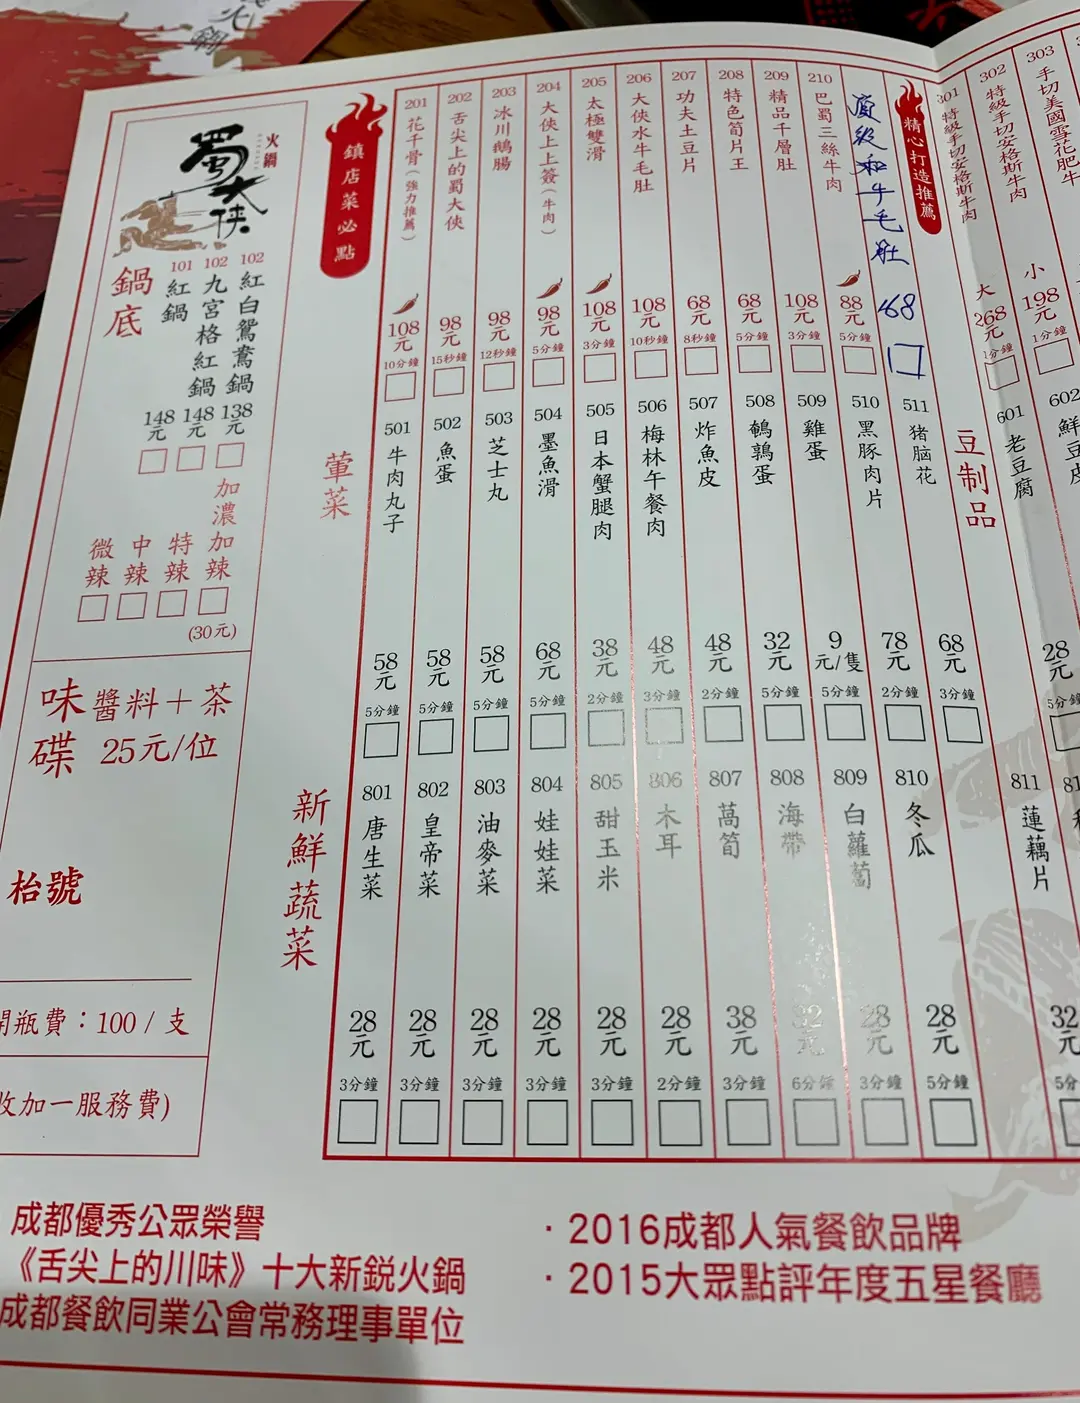 火鍋
蜀大侠
火鍋
鍋底
101 紅鍋 148元
102 九宮格紅鍋 148元
102 紅白鴛鴦鍋 138元
微辣
中辣
特辣
加濃加辣
(30元)
味碟
醬料＋茶
25元/位
枱號
開瓶費：100 / 支
收加一服務費)
鎮店菜必點
201 花千骨(強力推薦) 108元 10分鐘
202 舌尖上的蜀大俠 98元 15秒鐘
203 冰川鵝腸 98元 12秒鐘
204 大俠上上簽(牛肉) 98元 5分鐘
205 太極雙滑 108元 3分鐘
206 大俠水牛毛肚 108元 10秒鐘
207 功夫土豆片 68元 8秒鐘
208 特色筍片王 68元 5分鐘
209 精品千層肚 108元 3分鐘
210 巴蜀三絲牛肉 88元 5分鐘
頂級和牛毛肚 168
精心打造推薦
301 特級手切安格斯牛肉 大 268元 1分鐘
302 特級手切安格斯牛肉 小 198元 1分鐘
303 手切美國雪花肥牛
葷菜
501 牛肉丸子 58元 5分鐘
502 魚蛋 58元 5分鐘
503 芝士丸 58元 5分鐘
504 墨魚滑 68元 5分鐘
505 日本蟹腿肉 38元 2分鐘
506 梅林午餐肉 48元 3分鐘
507 炸魚皮 48元 2分鐘
508 鵪鶉蛋 32元 5分鐘
509 雞蛋 9元/隻 5分鐘
510 黑豚肉片 78元 2分鐘
511 猪脑花 68元 3分鐘
豆制品
601 老豆腐 28元 5分鐘
602 鮮豆皮
新鮮蔬菜
801 唐生菜 28元 3分鐘
802 皇帝菜 28元 3分鐘
803 油麥菜 28元 3分鐘
804 娃娃菜 28元 3分鐘
805 甜玉米 28元 3分鐘
806 木耳 28元 2分鐘
807 萵筍 38元 3分鐘
808 海帶 32元 6分鐘
809 白蘿蔔 28元 3分鐘
810 冬瓜 28元 5分鐘
811 蓮藕片 32元
成都優秀公眾榮譽
《舌尖上的川味》十大新鋭火鍋
成都餐飲同業公會常務理事單位
· 2016成都人氣餐飲品牌
· 2015大眾點評年度五星餐廳